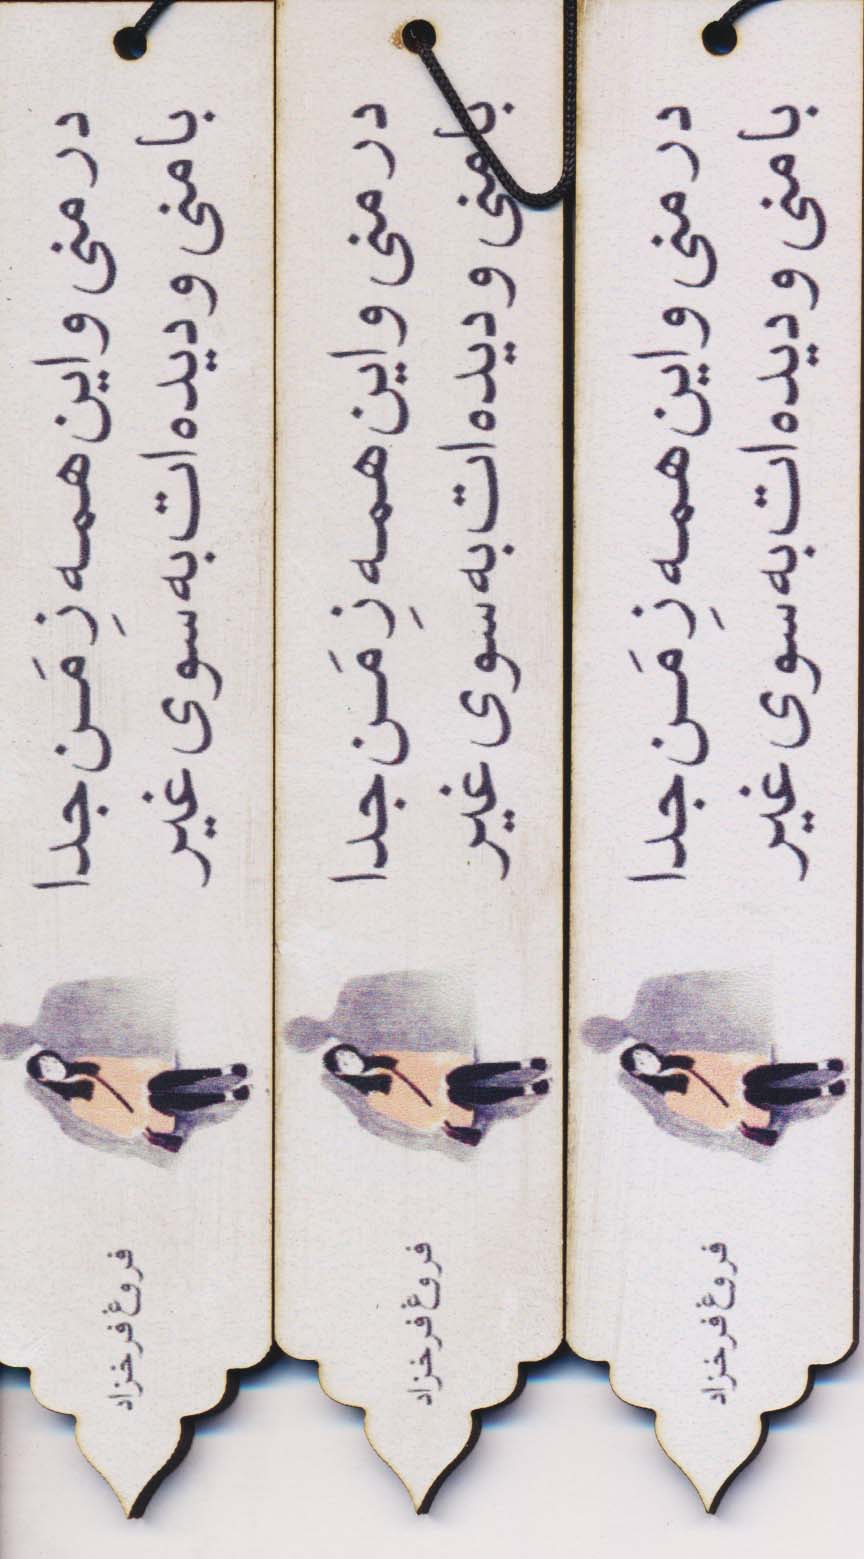 در منی و این همه زِ مَن جدا
با منی و دیده ات به سوی غیر
فروغ فرخزاد
در منی و این همه زِ مَن جدا
با منی و دیده ات به سوی غیر
فروغ فرخزاد
در منی و این همه زِ مَن جدا
با منی و دیده ات به سوی غیر
فروغ فرخزاد